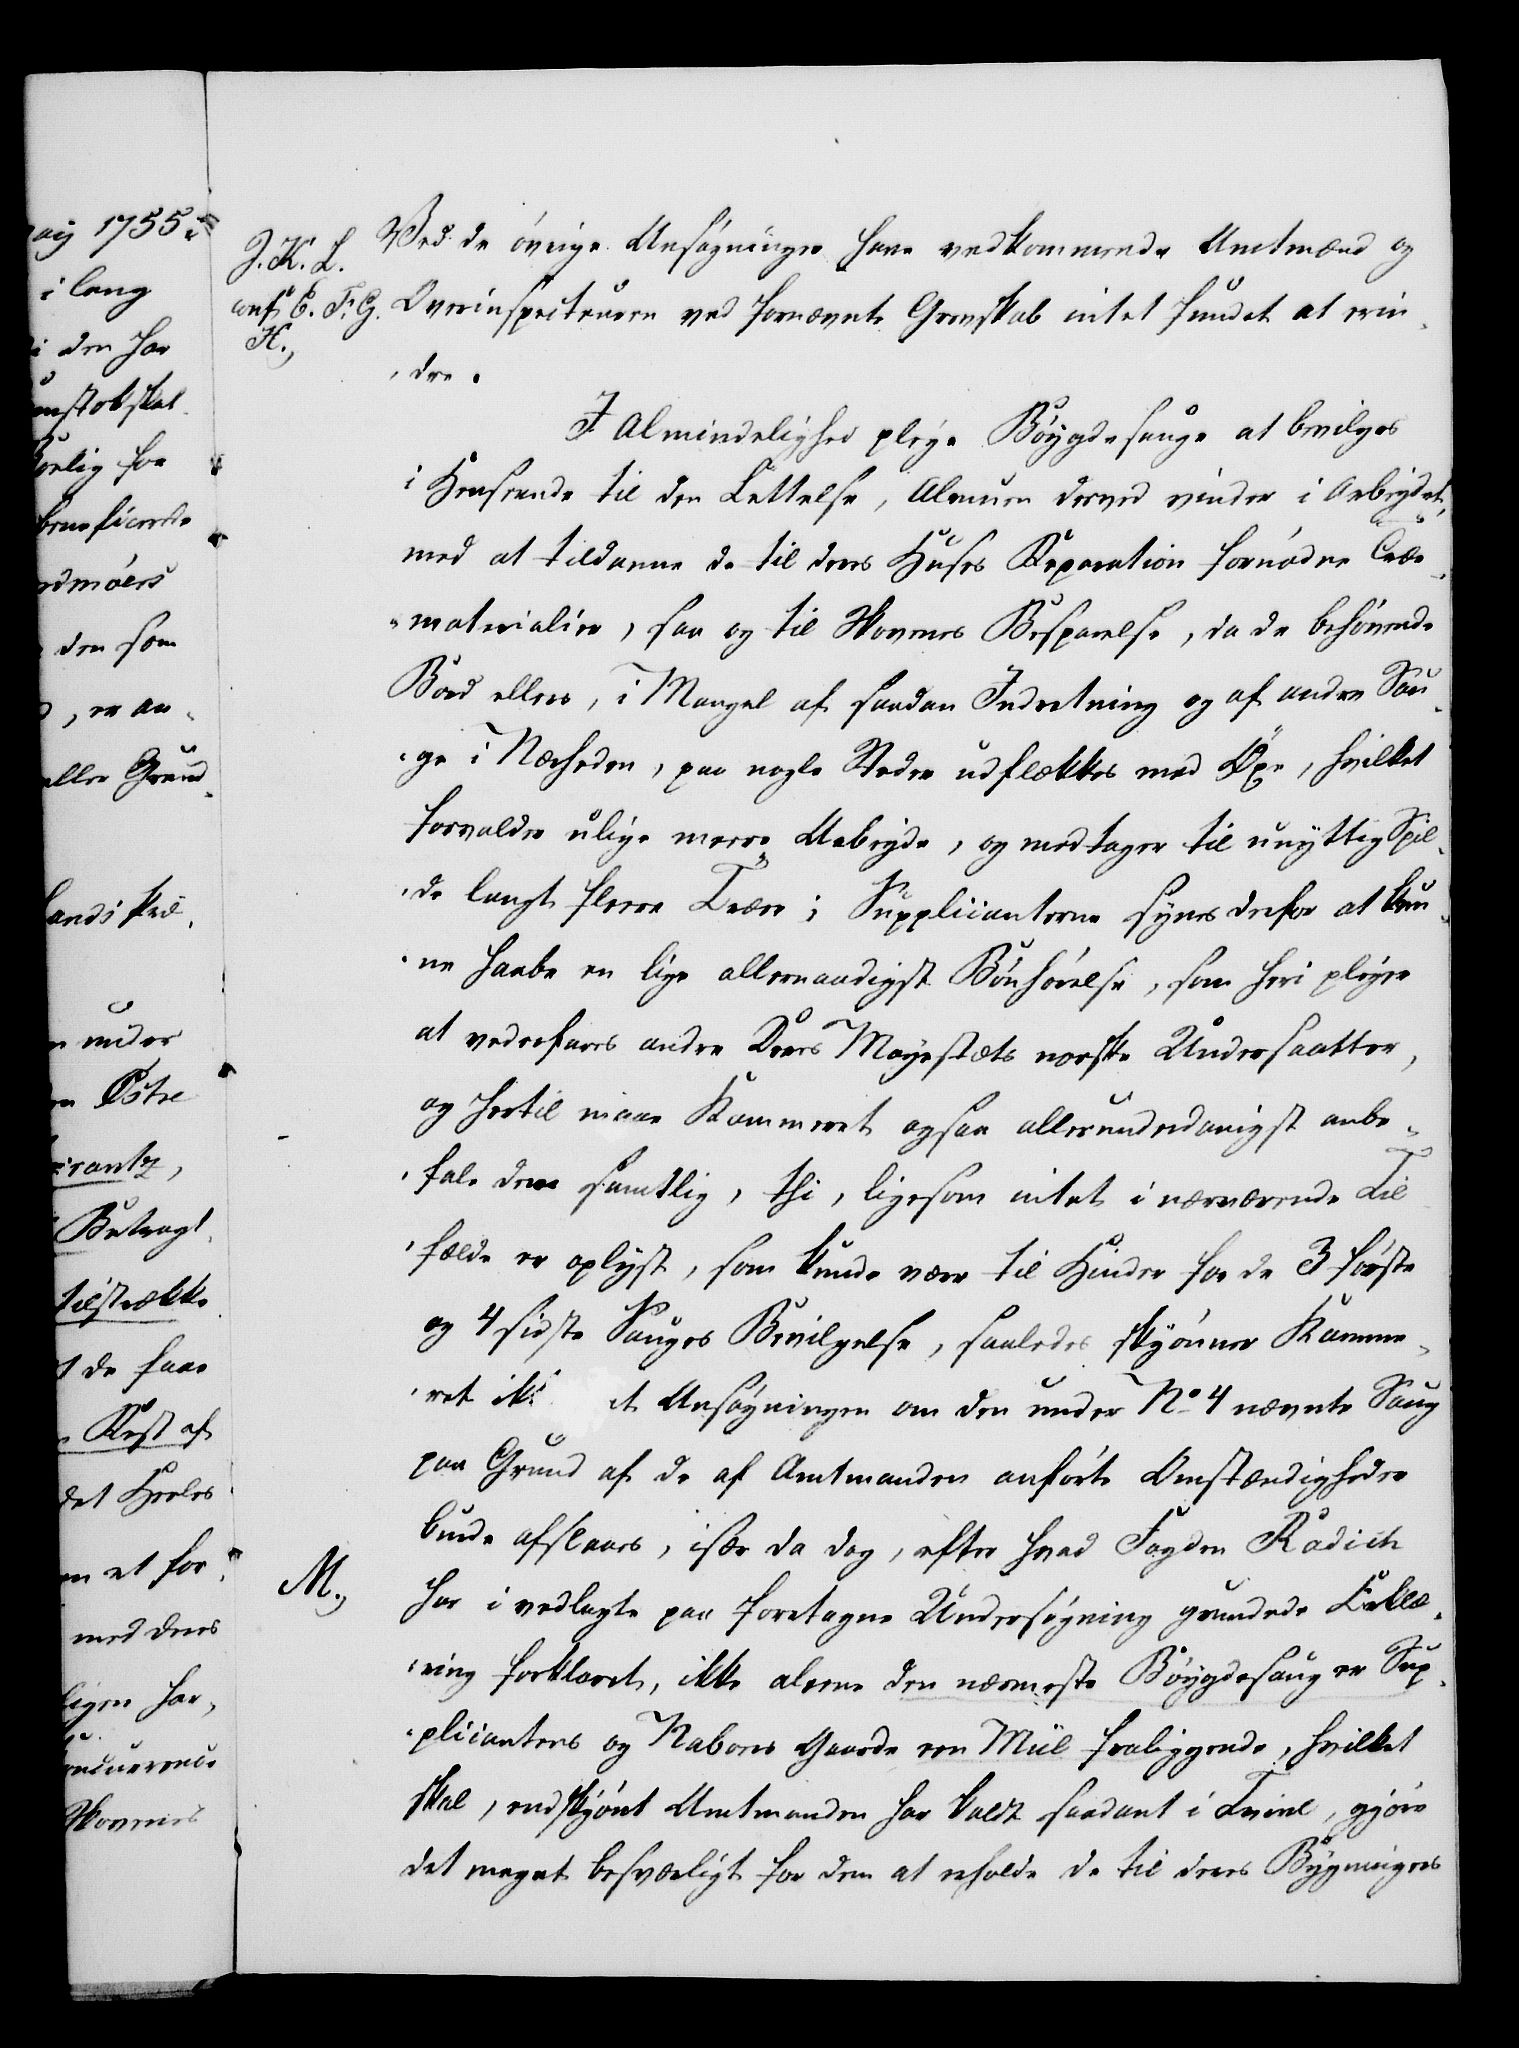 aij 1755 i
i lang
i den har
unstokskal
Aarlig for
beneficerede
ndmöers
den som
, er an-
eller Grund-
lands Præ-
n under
en Östre
rantz,
Betragt-
tilstrække
t de faae
Rest af
det Heeles
m et for-
med deres
ligen har,
concurrence
Skovenes
J. K. L.
conf. E. F. G.
H.,
Ved de övrige Ansögninger have vedkommende Amtmænd og
Overinspecteuren ved fornævnte Grevskab intet fundet at erin-
-dre.
I Almindelighed pleye Böygdesauge at bevilges
i Henseende til den Lettelse, Almuen derved vinder i Arbeydet,
med at tildanne de til deres Huses Reparation fornödne Træe-
-materialier, saa og til Skovenes Besparelse, da de behövende
Bord ellers, i Mangel af saadan Indretning og af andre Sau-
-ge i Nærheden, paa nogle Steder udflækkes med Öxe, hvilket
forvolder ulige meere Arbeyde, og medtager til unyttig Spil-
-de langt fleere Træer; Supplicanterne synes derfor at kun-
-ne haabe en lige allernaadigst Bönhörelse, som heri pleyer
at vederfares andre Deres Mayestæts norske Undersaatter,
og hertil maae Kammeret ogsaa allerunderdanigst anbe-
-fale dem samtlig, thi, ligesom intet i nærværende Til-
-fælde er oplyst, som kunde være til Hinder for de 3 förste
og 4 sidste Sauges Bevilgelse, saaledes skjönner Kamme-
-ret ik et Ansögningen om den under No 4 nævnte Saug
paa Grund af de af Amtmanden anförte Omstændigheder
burde afslaaes, især da dog, efter hvad Fogden Radich
M.,
har i vedlagte paa foretagne Undersögning grundede Erklæ-
-ring forklaret, ikke alene den nærmeste Böygdesaug er Sup-
-plicantens og Naboers Gaarde een Miil fraliggende, hvilket
skal, endskjönt Amtmanden har kaldt saadant i Tvivl, gjöre
det meget besværligt for dem at erholde de til deres Bygningers